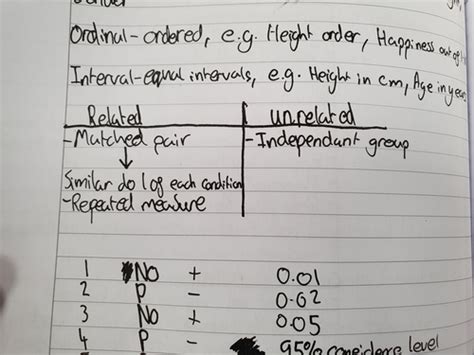 Ordinal - ordered, e.g. Height order, Happiness out of
Interval - equal intervals, e.g. Height in cm, Age in year
Related unrelated
- Matched pair - Independant group
Similar do 1 of each condition
- Repeated measure
1 No + 0.01
2 P - 0.02
3 No + 0.05
4 P - 95% confidence level